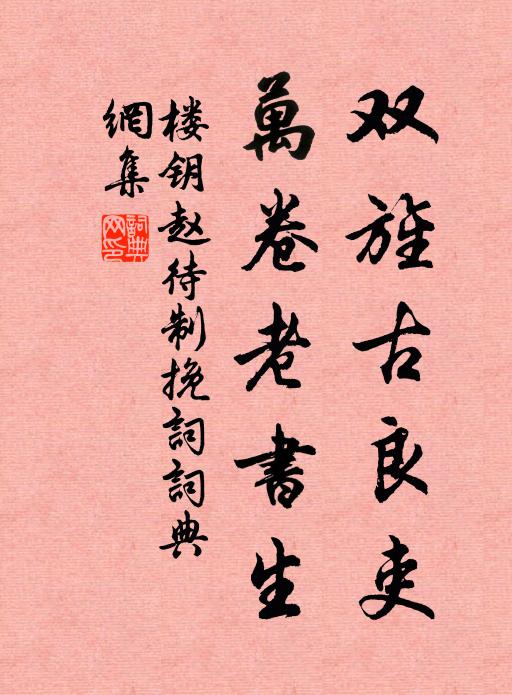 双旌古良吏
萬卷老書生
楼钥赵待制挽詞詞典
網集
詞典网印